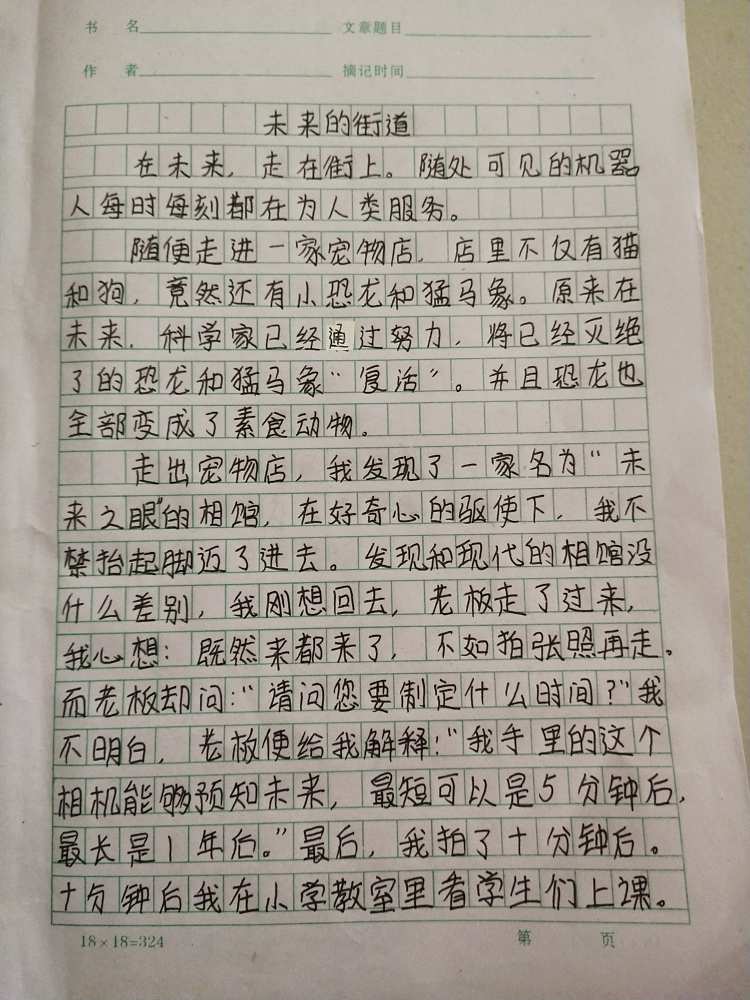 书 名 文章题目
作 者 摘记时间
未来的街道
在未来，走在街上。随处可见的机器
人每时每刻都在为人类服务。
随便走进一家宠物店，店里不仅有猫
和狗，竟然还有小恐龙和猛马象。原来在
未来，科学家已经通过努力，将已经灭绝
了的恐龙和猛马象“复活”。并且恐龙也
全部变成了素食动物。
走出宠物店，我发现了一家名为“未
来之眼”的相馆，在好奇心的驱使下，我不
禁抬起脚迈了进去。发现和现代的相馆没
什么差别，我刚想回去，老板走了过来，
我心想：既然来都来了，不如拍张照再走。
而老板却问：“请问您要制定什么时间？”我
不明白，老板便给我解释：“我手里的这个
相机能够预知未来，最短可以是5分钟后，
最长是1年后。”最后，我拍了十分钟后。
十分钟后我在小学教室里看学生们上课。
18×18=324 第 页